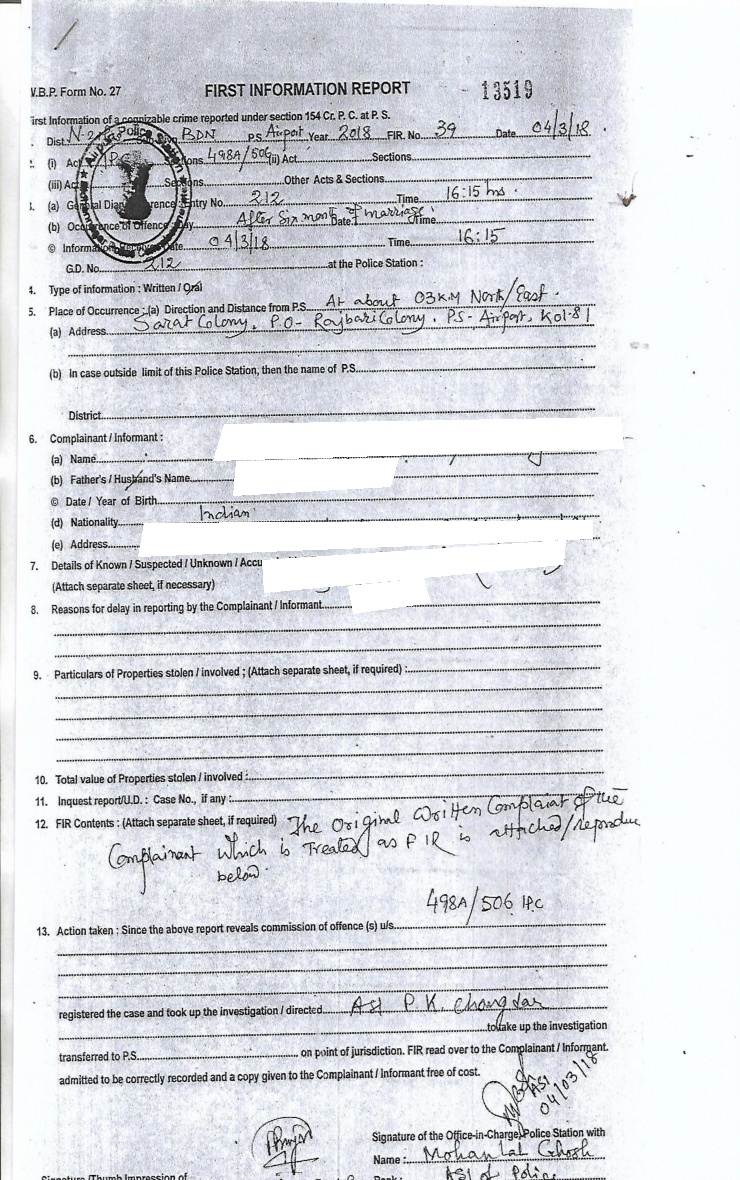 W.B.P. Form No. 27
FIRST INFORMATION REPORT
13519
First Information of a cognizable crime reported under section 154 Cr. P. C. at P. S.
Dist. N-24 BDN P.S. Airport Year 2018 FIR. No. 39 Date 04/3/18
(i) Act IPC Sections 498A/506 (ii) Act Sections
(iii) Act Sections Other Acts & Sections
(a) General Diary Reference: Entry No. 212 Time 16:15 hrs.
(b) Occurrence of Offence: Day After Six month of marriage. Date Time
© Information Received Date 04/3/18 Time 16:15
G.D. No. 212 at the Police Station :
4. Type of information : Written / Oral
5. Place of Occurrence ; (a) Direction and Distance from P.S. At about 03KM North/East.
(a) Address Sarat Colony, P.O- Rajbari Colony, P.S- Airport, Kol-81
(b) In case outside limit of this Police Station, then the name of P.S.
District
6. Complainant / Informant :
(a) Name
(b) Father's / Husband's Name
© Date / Year of Birth
(d) Nationality Indian
(e) Address
7. Details of Known / Suspected / Unknown / Accu
(Attach separate sheet, if necessary)
8. Reasons for delay in reporting by the Complainant / Informant
9. Particulars of Properties stolen / involved ; (Attach separate sheet, if required) :
10. Total value of Properties stolen / involved :
11. Inquest report/U.D. : Case No., if any :
12. FIR Contents : (Attach separate sheet, if required) The Original Written Complaint of the
Complainant which is Treated as FIR is attached/reproduce
below.
498A/506 IPC
13. Action taken : Since the above report reveals commission of offence (s) u/s.
registered the case and took up the investigation / directed ASI P.K. Chongdar
to take up the investigation
transferred to P.S. on point of jurisdiction. FIR read over to the Complainant / Informant.
admitted to be correctly recorded and a copy given to the Complainant / Informant free of cost.
ASI
04/03/18
Signature of the Office-in-Charge, Police Station with
Name : Mohanlal Ghosh
Signature /Thumb Impression of
Rank : ASI of Police